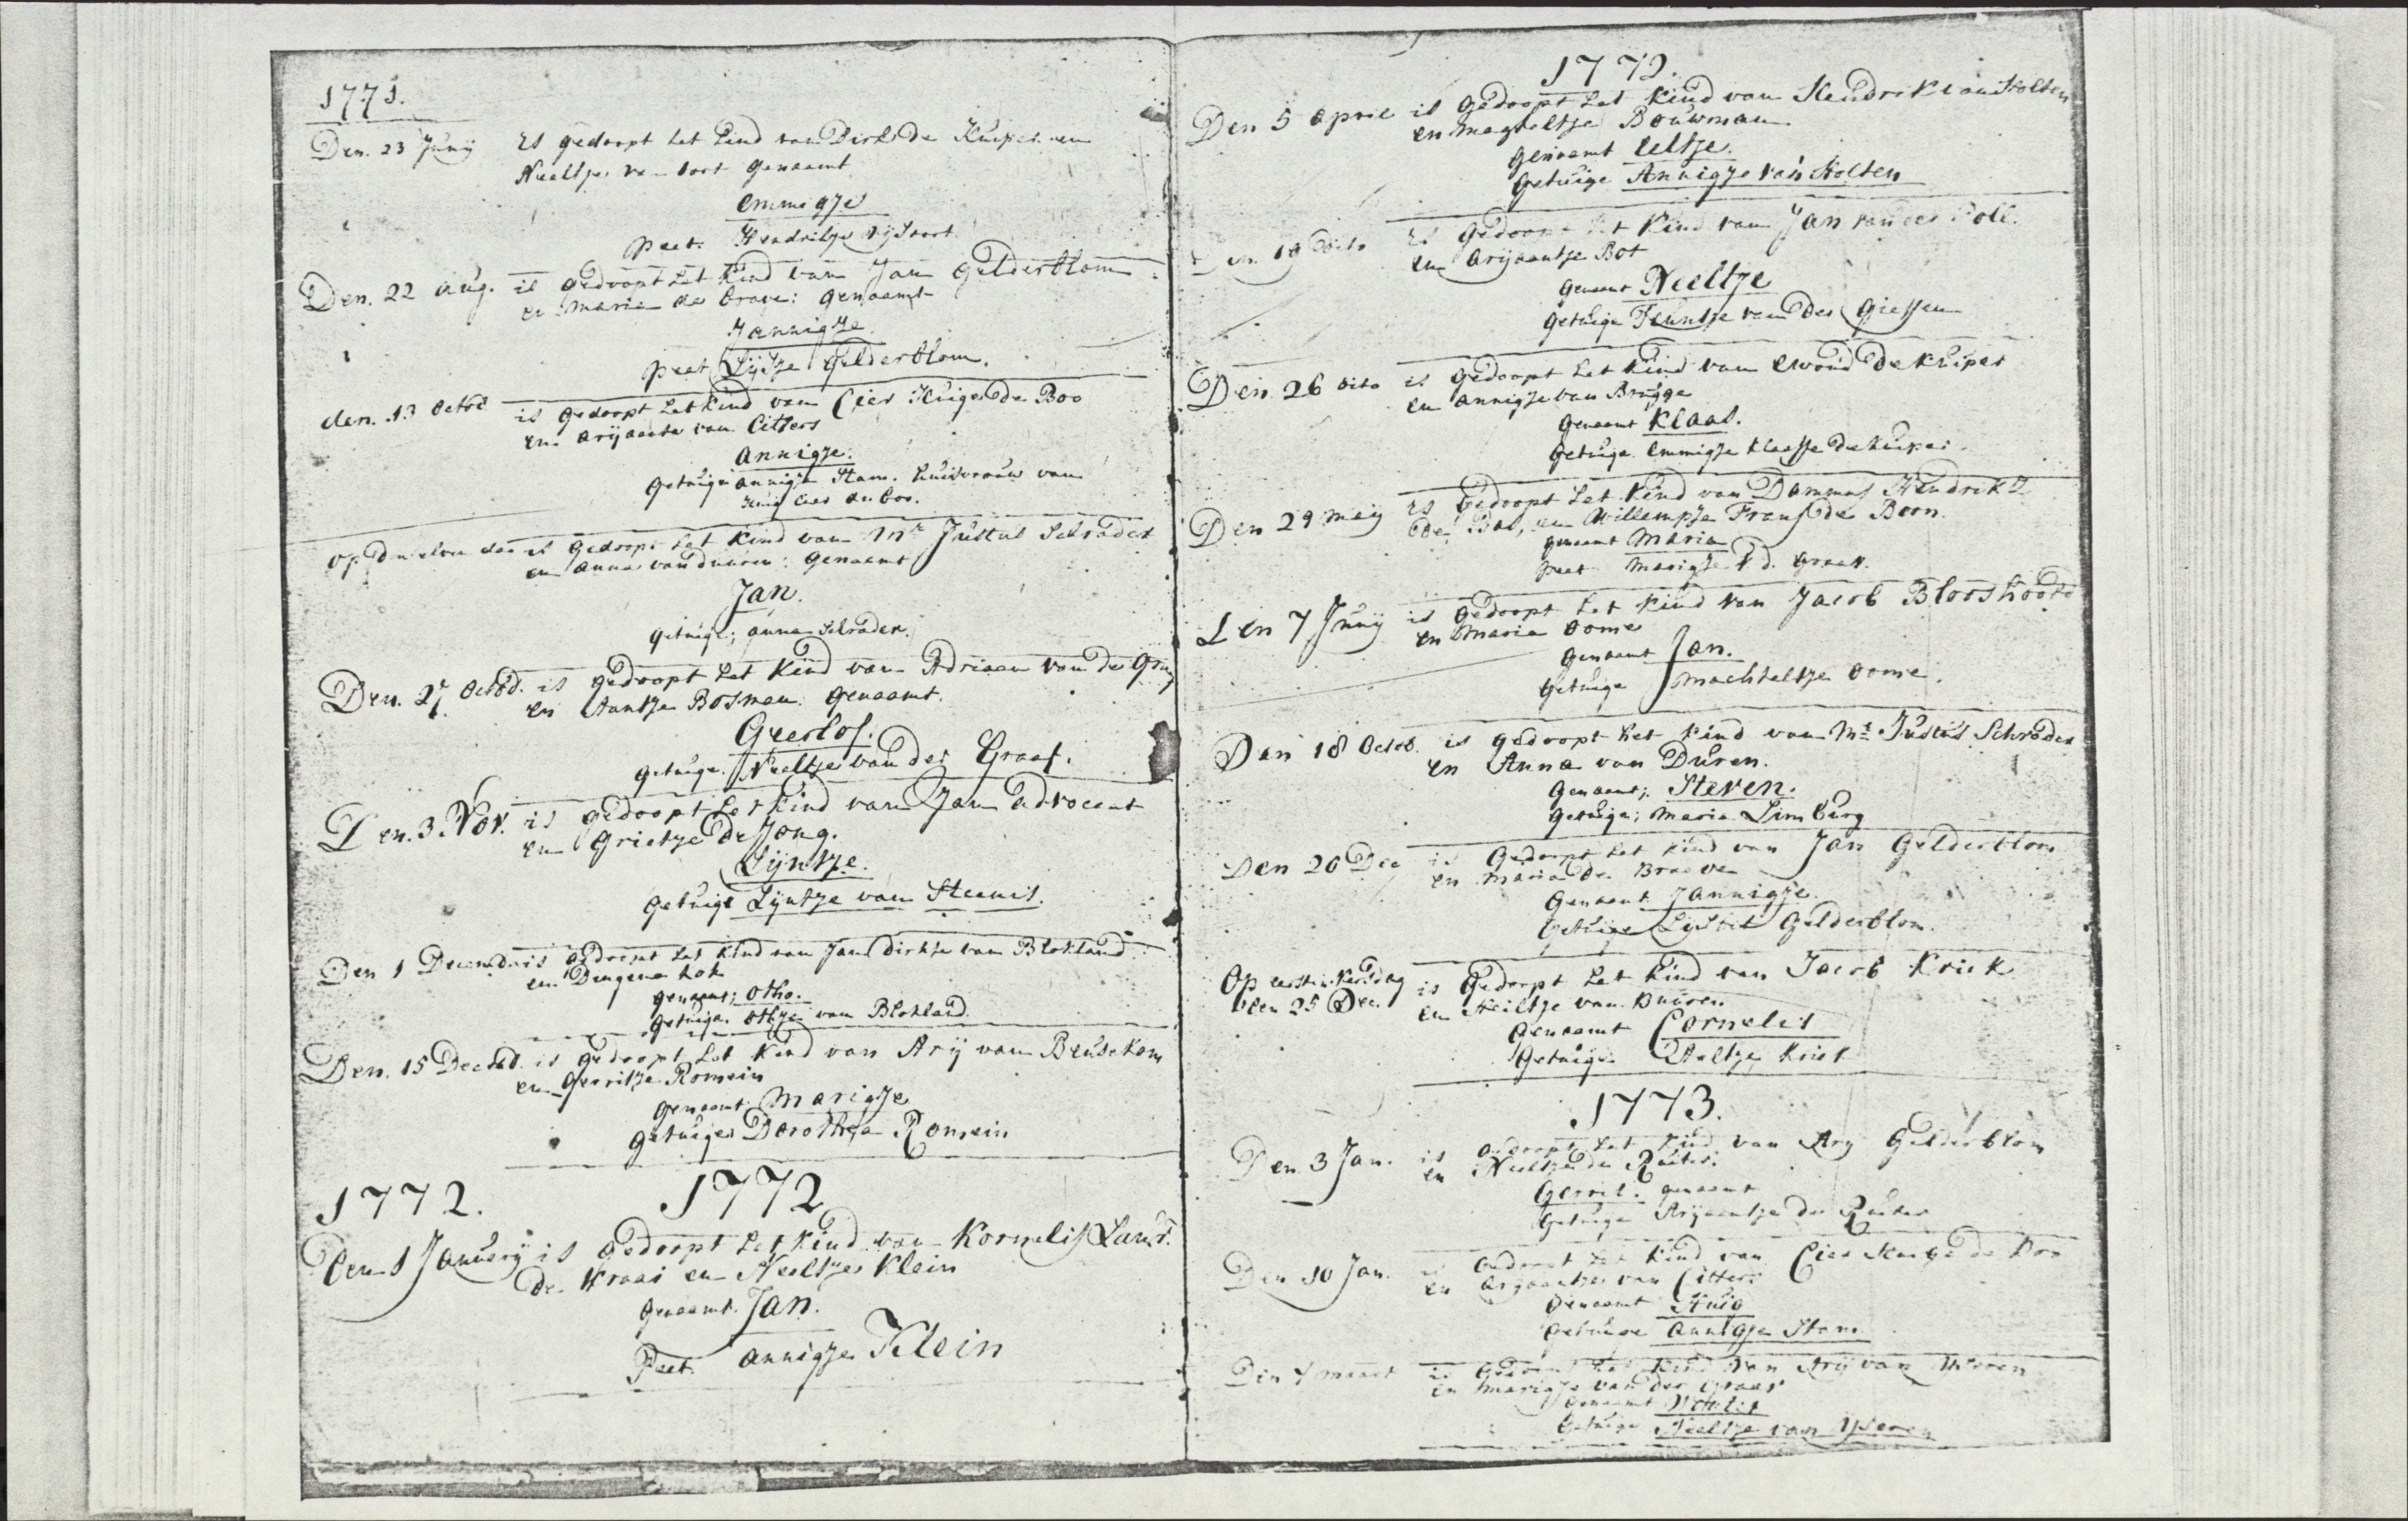 1771.
Den. 23 Junij Is gedoopt het kind van Dirk de Kuiper en
Neeltje genaamt
Emmigje
peet. Hendrikje
Den. 22 Aug. is gedoopt het kind van Jan Gelderblom
en Maria de Brave: genaamt
Jannigje
peet Lijsje Gelderblom.
den. 13 Octob is gedoopt het kind van Cies Huigen de Boo
en Arijaantie van Citters
Annigje.
getuige annigje Stam. huisvrouw van
Huig Cies de Boo.
op den selven dag is gedoopt het kind van Mr Justus Schrader
en Anna van Duuren: genaamt
Jan.
getuige; anna Schrader.
Den. 27 Octob. is gedoopt het kind van Adriaan van de
en Aantje Bosman. genaamt.
Geerlof.
getuige. Neeltje van der Graaf.
Den. 3 Nov. is gedoopt het kind van Jan advocaat
en Grietje de Jong.
Lijntje.
getuige Lijntje van Steenis.
Den 1 December is gedoopt het kind van Jan Dirkse van Blokland
en Dingena hok
genaamt; Otho.
getuige. Othje van Blokland.
Den. 15 Decemb. is gedoopt het kind van Arij van Beusekom
en Gerritje Romein
genaamt. Marigje
getuige Dorothea Romein
1772. 1772
Den 1 January is gedoopt het kind van Kornelis Laur.
de Kraai en Neeltje Klein
genaamt. Jan.
Peet. Annigje Klein
1772.
Den 5 April is gedoopt het kind van Hendrik van Holten
en Magheltje Bouwman.
genaamt Eeltje.
getuige Annigje van Holten
Den. 19 dito is gedoopt het kind van Jan van der Poll.
en Arijaantje Bot
genaamt Neeltje
getuige Teuntje van der Giessen
Den. 26 dito is gedoopt het kind van Ewoud de Kuiper
en annigje van Brugge
genaamt Klaas.
getuige. Emmigje Klaasse de Kuiper.
Den 29 Meij is gedoopt het kind van Dammas Hendrik
de Bas, en Willempje Frans de Boon.
genaamt Maria
peet Marigje v d. Graaf.
Den 7 Junij is gedoopt het kind van Jacob Blooshoofd
en Maria Oome
genaamt Jan.
getuige Machteltje Oome.
Den 18 Octob. is gedoopt het kind van Mr. Justus Schrader
en Anna van Duren.
genaamt; Steven.
getuige; Maria Limburg
Den 20 Dec is gedoopt het kind van Jan Gelderblom
en Maria de Brave
genaamt Jannigje.
getuige Lijsbet Gelderblom.
Op eersten Kersdag is gedoopt het kind van Jacob Kriek
den 25 Dec. en Heiltje van Buuren
genaamt Cornelis
getuige Aaltje Kriek
1773.
Den. 3 Jan. is gedoopt het kind van Ary Gelderblom
en Neeltje de Ruiter.
Gerrit. genaamt
getuige Arijaantje de Ruiter
Den 10 Jan. is gedoopt het kind van Cies Huige de Boo
en Arijaantje van Citters
genaamt Huig
getuige Annigje Stam.
Den 7 maart is gedoopt het kind van Arij van
en Marigje van der Graaf
genaamt
getuige Neeltje van